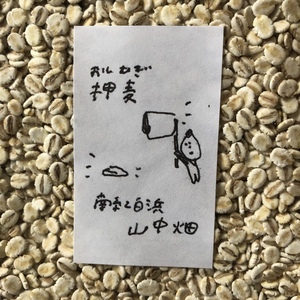 おしむぎ
押麦
南あわ白浜
山中畑